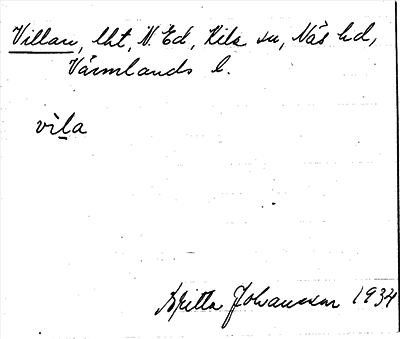 Villan, lht, N. Ed, Kila sn, Näs hd,
Värmlands l.
vila
Britta Johansson 1934